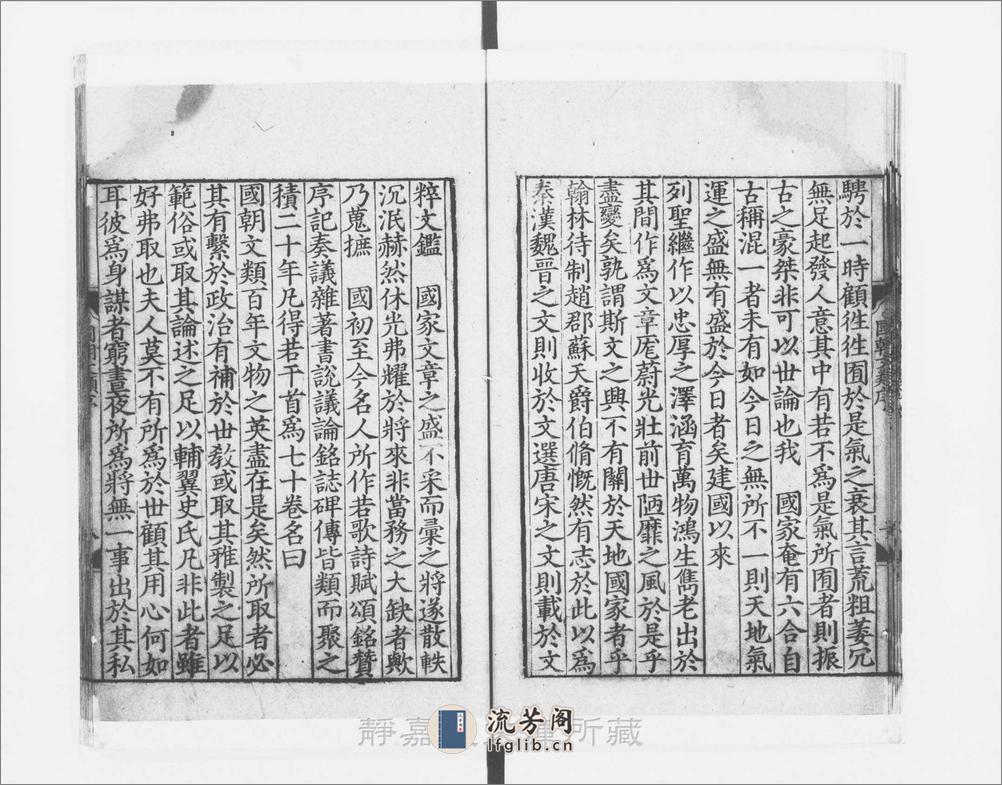 騁於一時顧徃徃囿於是氣之衰其言荒粗萎冗
無足起發人意其中有若不爲是氣所囿者則振
古之豪桀非可以世論也我　國家奄有六合自
古稱混一者未有如今日之無所不一則天地氣
運之盛無有盛於今日者矣建國以來
列聖繼作以忠厚之澤涵育萬物鴻生雋老出於
其間作爲文章厖蔚光壯前世陋靡之風於是乎
盡變矣孰謂斯文之興不有關於天地國家者乎
翰林待制趙郡蘇天爵伯脩慨然有志於此以爲
秦漢魏晉之文則收於文選唐宋之文則載於文
粹文鑑　國家文章之盛不采而彙之將遂散軼
沉泯赫然休光弗耀於將來非當務之大缺者歟
乃蒐摭　國初至今名人所作若歌詩賦頌銘贊
序記奏議雜著書說議論銘誌碑傳皆類而聚之
積二十年凡得若干首爲七十卷名曰
國朝文類百年文物之英盡在是矣然所取者必
其有繫於政治有補於世敎或取其雅製之足以
範俗或取其論述之足以輔翼史氏凡非此者雖
好弗取也夫人莫不有所爲於世顧其用心何如
耳彼爲身謀者窮晝夜所爲將無一事出於其私
流芳阁
lfglib.cn
靜嘉
所藏